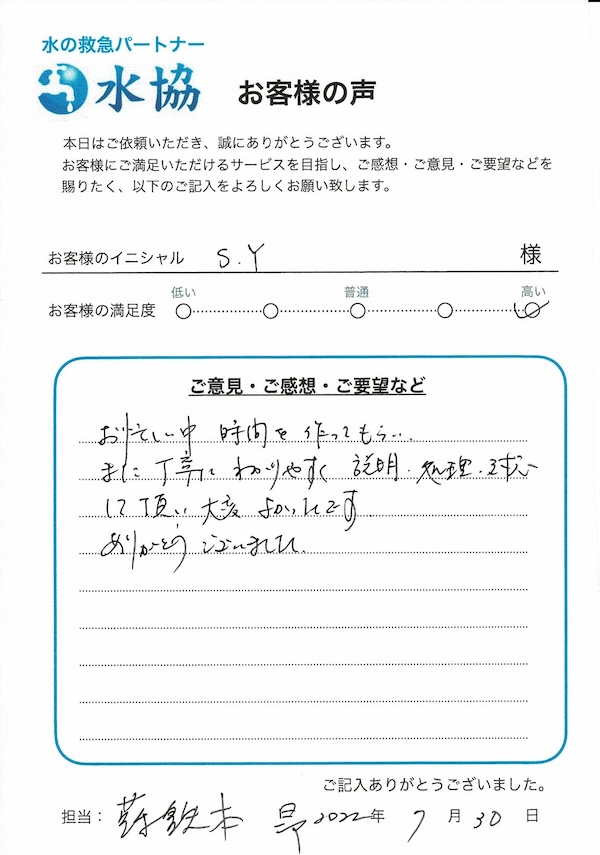 水の救急パートナー
水協 お客様の声
本日はご依頼いただき、誠にありがとうございます。
お客様にご満足いただけるサービスを目指し、ご感想・ご意見・ご要望などを
賜りたく、以下のご記入をよろしくお願い致します。
お客様のイニシャル S.Y 様
低い 普通 高い
お客様の満足度
ご意見・ご感想・ご要望など
お忙しい中 時間を作ってもらい、
また丁寧に わかりやすく 説明・処理・対応
して頂い 大変 よかったです。
ありがとう ございました。
ご記入ありがとうございました。
担当: 鉄本 昴 2022年 7月30日